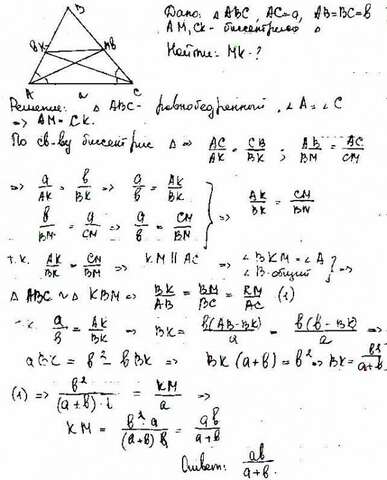 B
BK AB
A a C
Дано: △ ABC, AC=a, AB=BC=в
AM, CK - биссектрисы △
Найти: MK-?
Решение: △ ABC - равнобедренный, ∠A = ∠C
=> AM = CK.
По св-ву биссектрис △ => AC/AK = CB/BK ; AB/BM = AC/CM
=> a/AK = в/BK => a/в = AK/BK
в/BM = a/CM => a/в = CM/BM } => AK/BK = CM/BM
т.к. AK/BK = CM/BM => KM || AC => ∠BKM = ∠A
∠B - общий } =>
△ ABC ~ △ KBM => BK/AB = BM/BC = KM/AC (1)
т.к. a/в = AK/BK => BK = в(AB-BK)/a = в(в-BK)/a =>
aBK = в² - вBK => BK (a+в) = в² => BK = в²/(a+в)
(1) => в²/((a+в)·в) = KM/a =>
KM = в²·a/((a+в)в) = aв/(a+в)
Ответ: aв/(a+в).